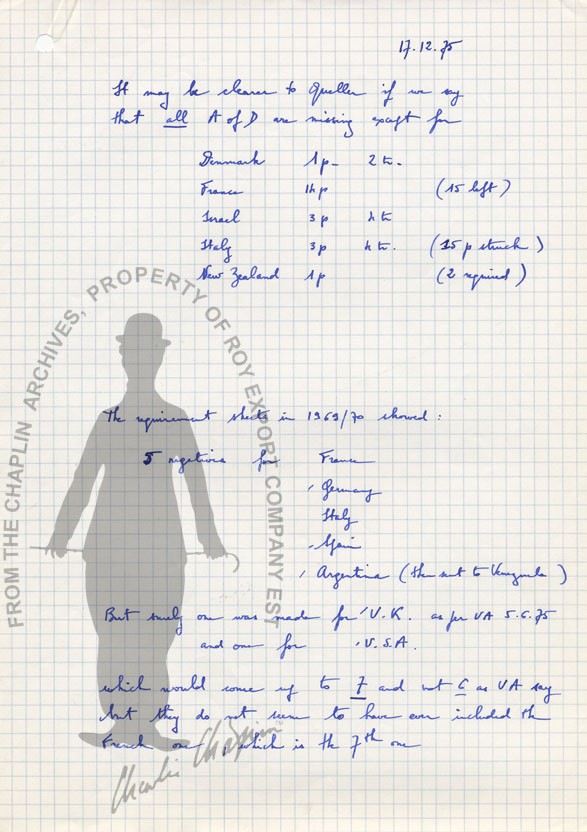 17.12.75
It may be clearer to Queller if we say
that all A of D are missing except for
Denmark 1 p - 2 tr.
France 14 p (15 left)
Israel 3 p 4 tr
Italy 3 p 4 tr. (15 p struck)
New Zealand 1 p (2 required)
FROM THE CHAPLIN ARCHIVES, PROPERTY OF ROY EXPORT COMPANY EST
The requirement sheets in 1969/70 showed :
5 negatives for France
Germany
Italy
Spain
Argentina (then sent to Venezuela)
But surely one was made for U.K. as per UA 5.6.75
and one for U.S.A.
which would come up to 7 and not 6 as UA say
but they do not seem to have ever included the
French one, which is the 7th one
Charlie Chaplin